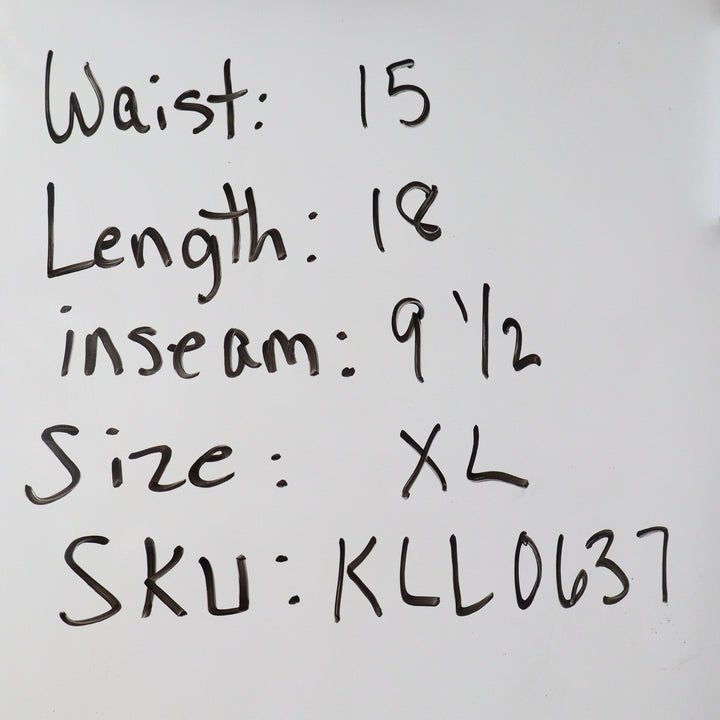 Waist: 15
Length: 18
inseam: 9 1/2
Size: XL
SKU: KLL0637